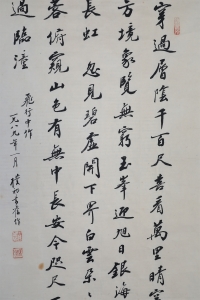 穿過層陰千百尺喜看萬里晴空
方境象覽無窮玉峯迎旭日銀海
長虹 忽見碧虛開下界白雲朵朵
容俯窺山色有無中長安今咫尺
過臨潼
飛行中作
一九八九年一月 樸初書舊作